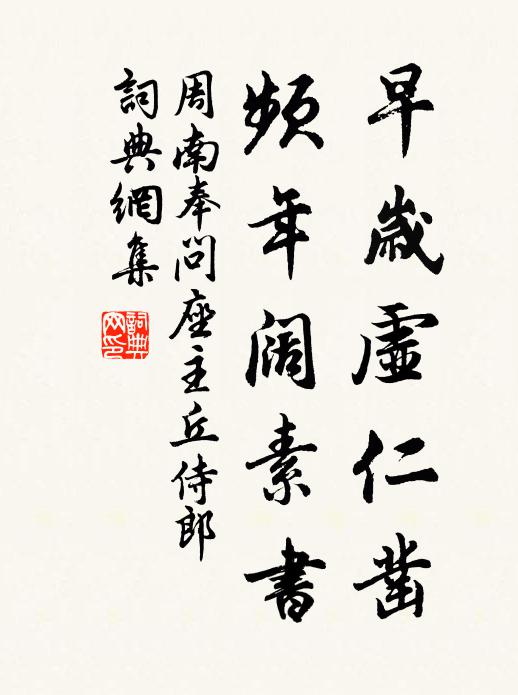 早歲虛仁凿
頻年闊素書
周南奉問座主丘侍郎
詞典網集
詞典
网印